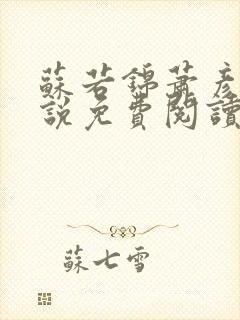 蘇若錦蕭彥
說免費閱讀
蘇七雪